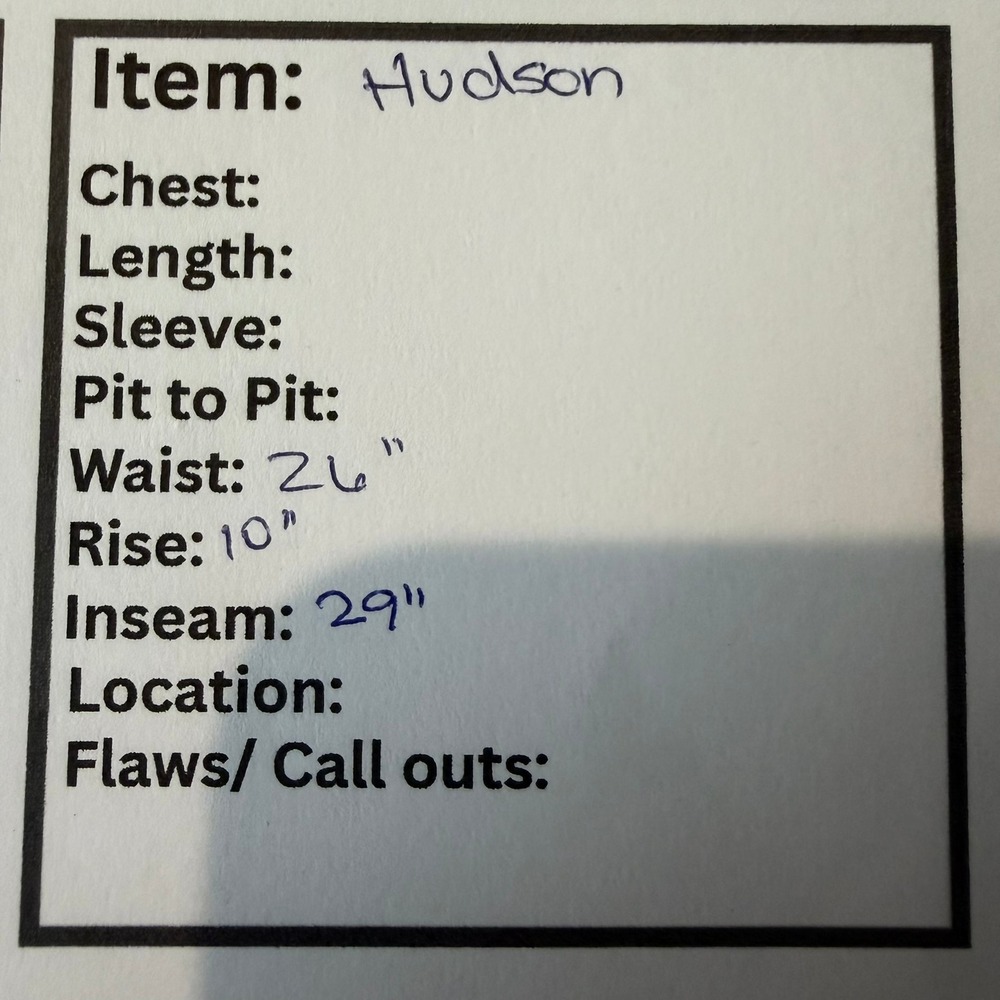 Item: Hudson
Chest:
Length:
Sleeve:
Pit to Pit:
Waist: 26"
Rise: 10"
Inseam: 29"
Location:
Flaws/ Call outs: